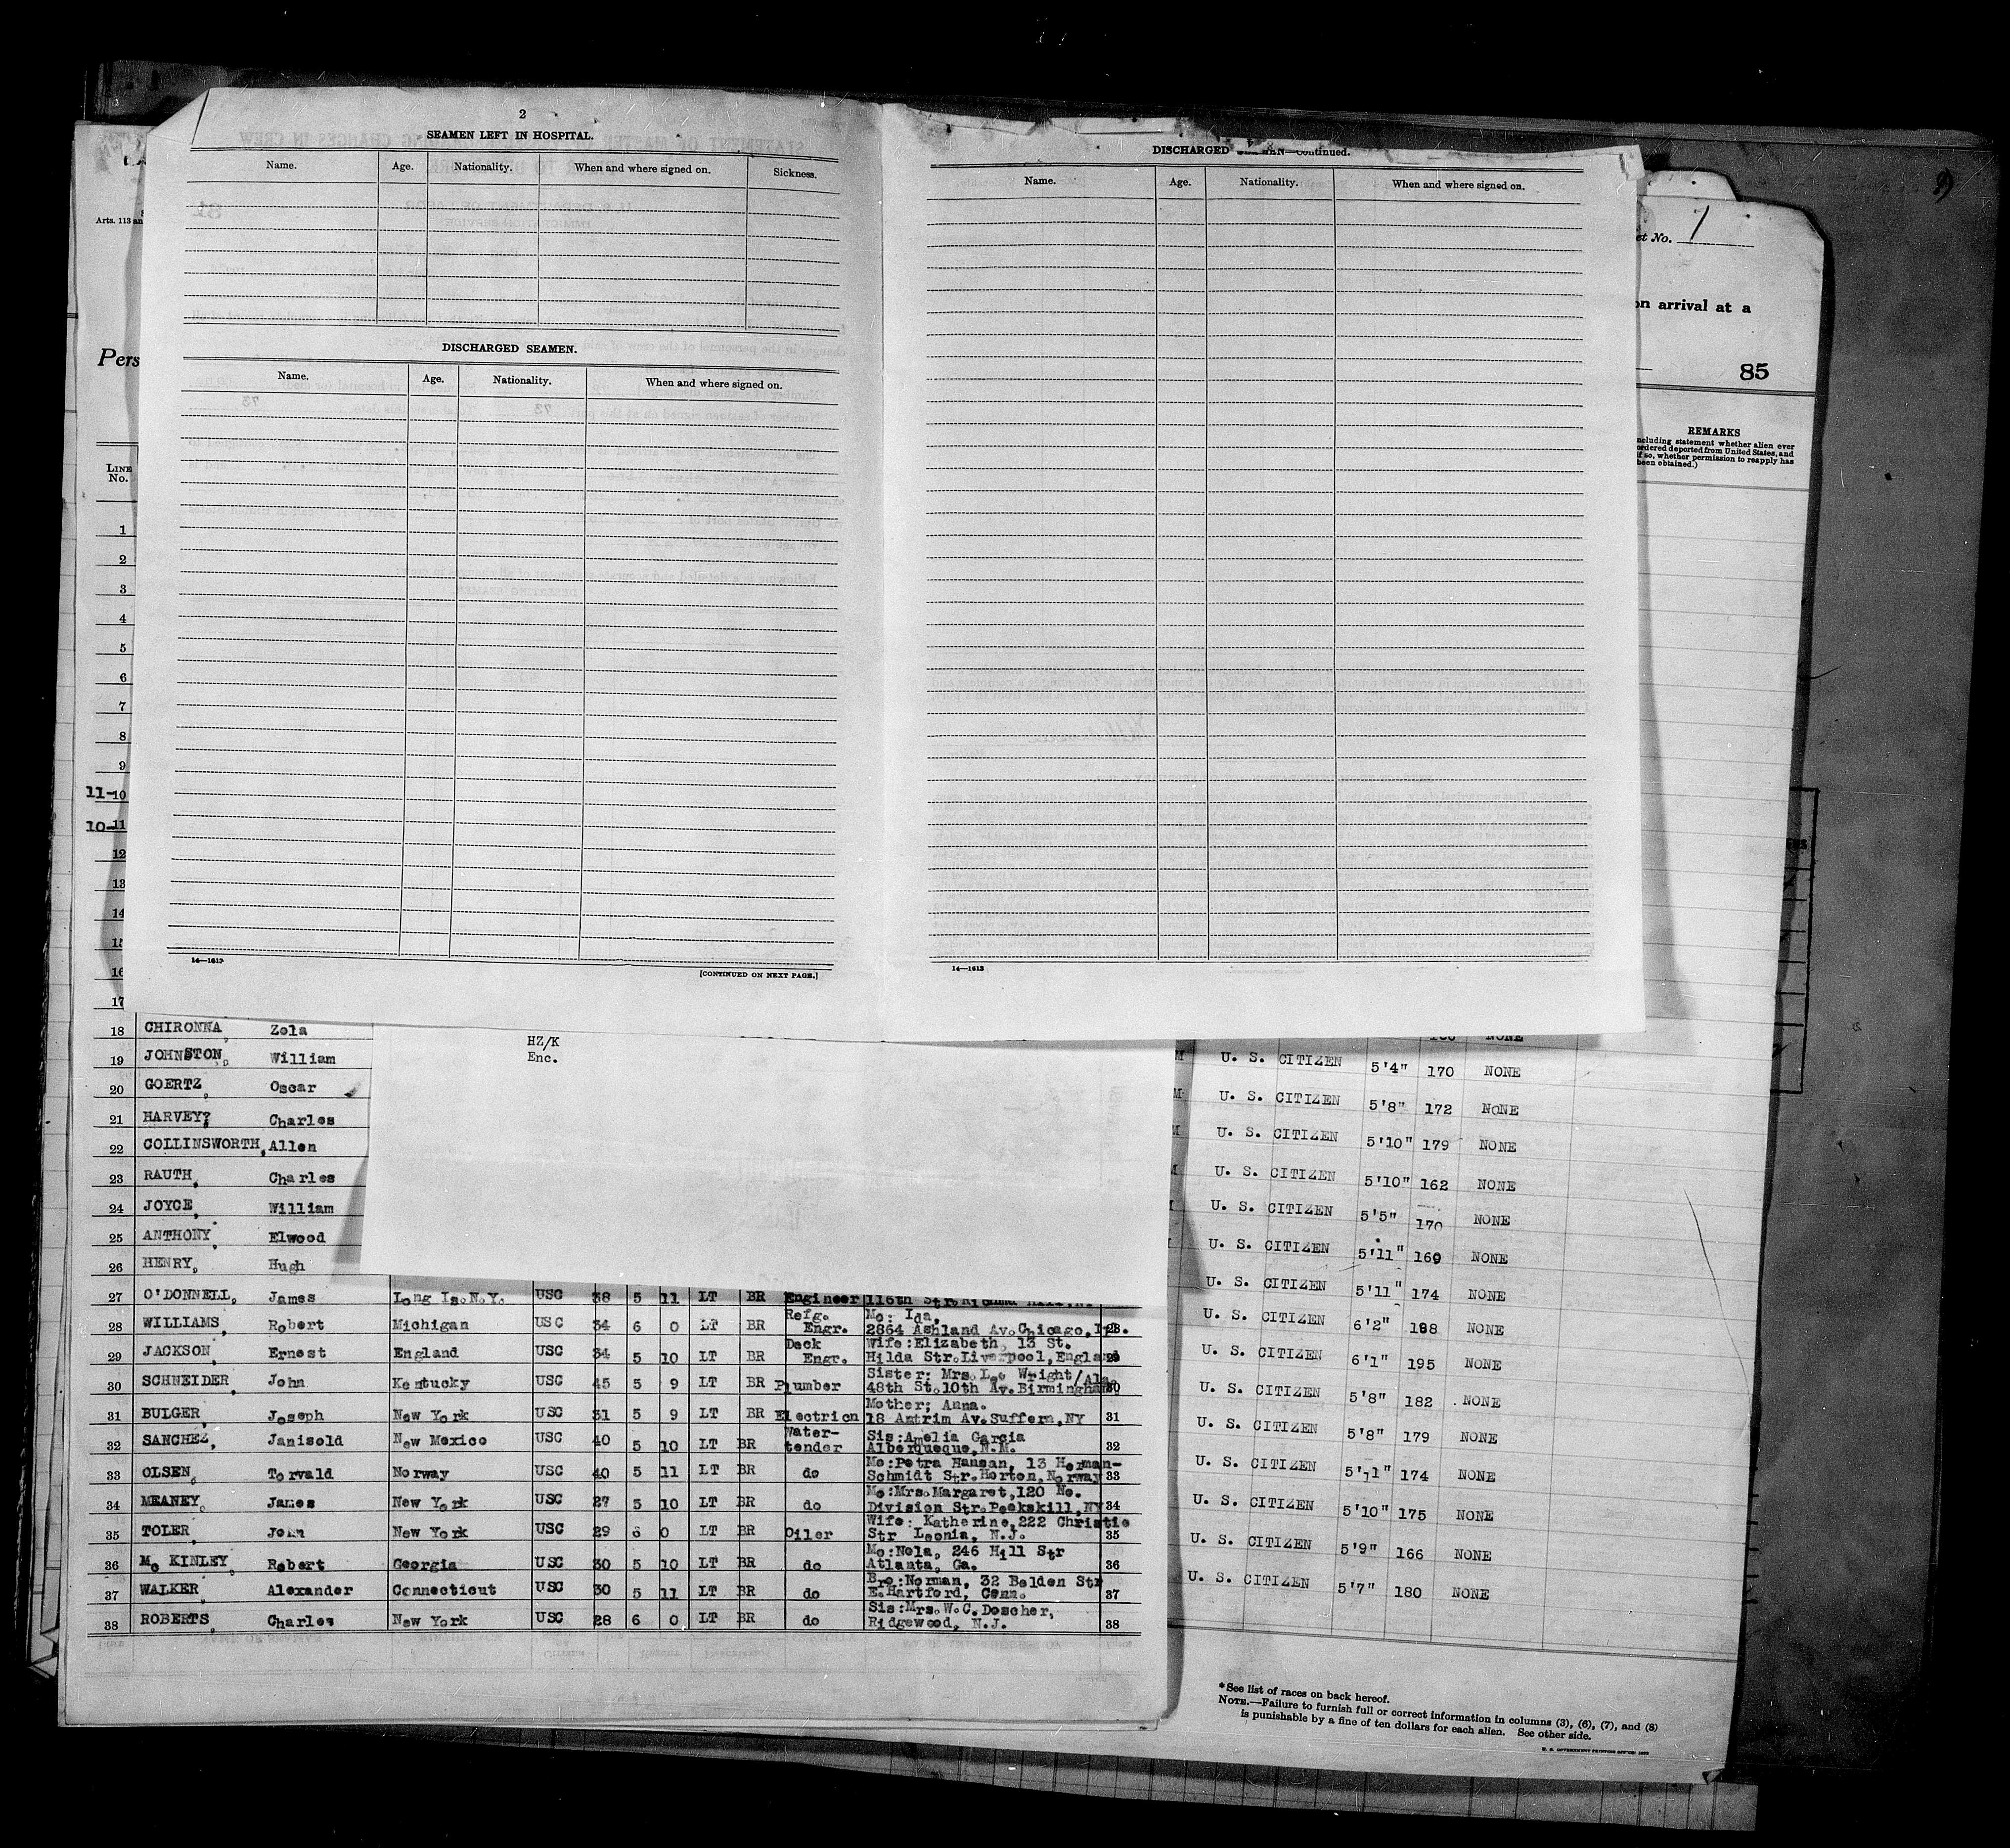 2
SEAMEN LEFT IN HOSPITAL.
Name. Age. Nationality. When and where signed on. Sickness.
DISCHARGED SEAMEN.
Name. Age. Nationality. When and where signed on.
14—1613
[CONTINUED ON NEXT PAGE.]
DISCHARGED SEAMEN—Continued.
Name. Age. Nationality. When and where signed on.
14—1613
Arts. 113 an
Pers
LINE No.
1
2
3
4
5
6
7
8
9
11-10
10-11
12
13
14
15
16
17
et No. 1
on arrival at a
85
REMARKS
ncluding statement whether alien ever
ordered deported from United States, and
if so, whether permission to reapply has
been obtained.)
HZ/K
Enc.
18 CHIRONNA, Zola
19 JOHNSTON, William
20 GOERTZ, Oscar
21 HARVEY, Charles
22 COLLINSWORTH, Allen
23 RAUTH, Charles
24 JOYCE, William
25 ANTHONY, Elwood
26 HENRY, Hugh
27 O'DONNELL, James Long Is. N.Y. USC 38 5 11 LT BR Engineer 116th Str.
28 WILLIAMS, Robert Michigan USC 34 6 0 LT BR Refg. Engr. Mo: Ida, 2864 Ashland Av. Chicago, Ill. 28
29 JACKSON, Ernest England USC 34 5 10 LT BR Deck Engr. Wife: Elizabeth, 13 St. Hilda Str. Liverpool, England 29
30 SCHNEIDER, John Kentucky USC 45 5 9 LT BR Plumber Sister: Mrs. Leo Wright/Ala 48th St. 10th Av. Birmingham 30
31 BULGER, Joseph New York USC 31 5 9 LT BR Electricn Mother; Anna. 18 Antrim Av. Suffern, NY 31
32 SANCHEZ, Janisold New Mexico USC 40 5 10 LT BR Water-tender Sis: Amelia Garcia Alberqueque, N.M. 32
33 OLSEN, Torvald Norway USC 40 5 11 LT BR do Mo: Petra Hansan, 13 Herman-Schmidt Str. Horton, Norway 33
34 MEANEY, James New York USC 27 5 10 LT BR do Mo: Mrs. Margaret, 120 No. Division Str. Peekskill, NY 34
35 TOLER, John New York USC 29 6 0 LT BR Oiler Wife: Katherine, 222 Christie Str Leonia, N.J. 35
36 Mc KINLEY, Robert Georgia USC 30 5 10 LT BR do Mo: Nola, 246 Hill Str Atlanta, Ga. 36
37 WALKER, Alexander Connecticut USC 30 5 11 LT BR do Bro: Norman, 32 Belden Str E. Hartford, Conn. 37
38 ROBERTS, Charles New York USC 28 6 0 LT BR do Sis: Mrs. W. C. Doscher, Ridgewood, N.J. 38
NONE
U. S. CITIZEN 5'4" 170 NONE
U. S. CITIZEN 5'8" 172 NONE
U. S. CITIZEN 5'10" 179 NONE
U. S. CITIZEN 5'10" 162 NONE
U. S. CITIZEN 5'5" 170 NONE
U. S. CITIZEN 5'11" 160 NONE
U. S. CITIZEN 5'11" 174 NONE
U. S. CITIZEN 6'2" 188 NONE
U. S. CITIZEN 6'1" 195 NONE
U. S. CITIZEN 5'8" 182 NONE
U. S. CITIZEN 5'8" 179 NONE
U. S. CITIZEN 5'11" 174 NONE
U. S. CITIZEN 5'10" 175 NONE
U. S. CITIZEN 5'9" 166 NONE
U. S. CITIZEN 5'7" 180 NONE
*See list of races on back hereof.
NOTE.—Failure to furnish full or correct information in columns (3), (6), (7), and (8)
is punishable by a fine of ten dollars for each alien. See other side.